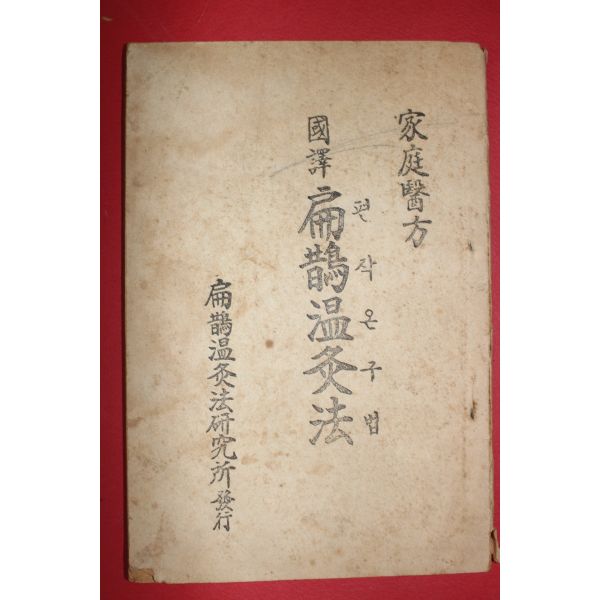 家庭醫方
國譯 扁鵲温灸法
편작온구법
扁鵲温灸法研究所 發行